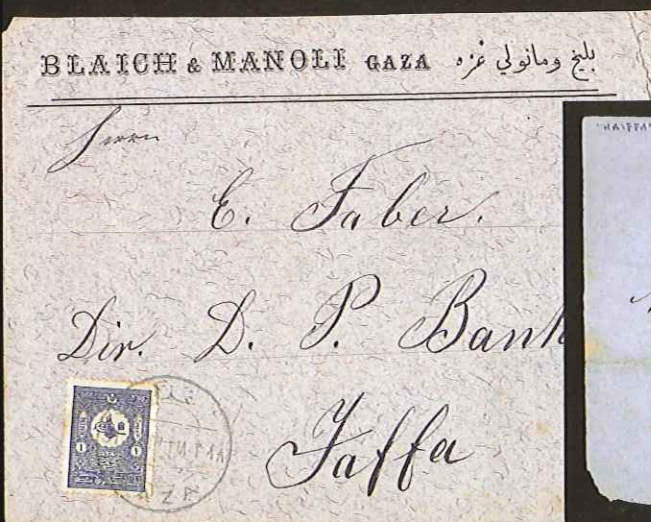 BLAICH & MANOLI GAZA بليخ ومانولي غزه
Herrn
E. Faber.
Dir. D. P. Bank
Jaffa
1 1
"HAIFFA"